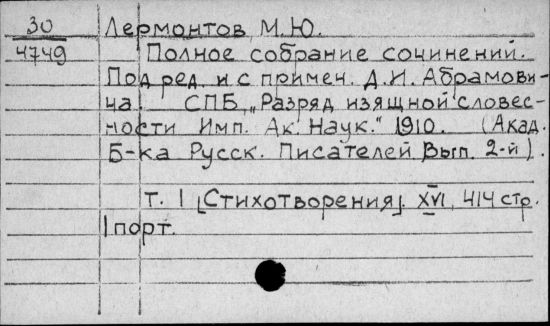 30 Лермонтов, М.Ю.
4749 Полное собрание сочинений.
Под ред. и с примеч. Д.И. Абрамови-
ча. СПБ, „Разряд изящной словес-
ности Имп. Ак. Наук." 1910. (Акад.
Б-ка Русск. Писателей Вып. 2-й).
т. I [Стихотворения]. XVI, 414 стр.
1 порт.